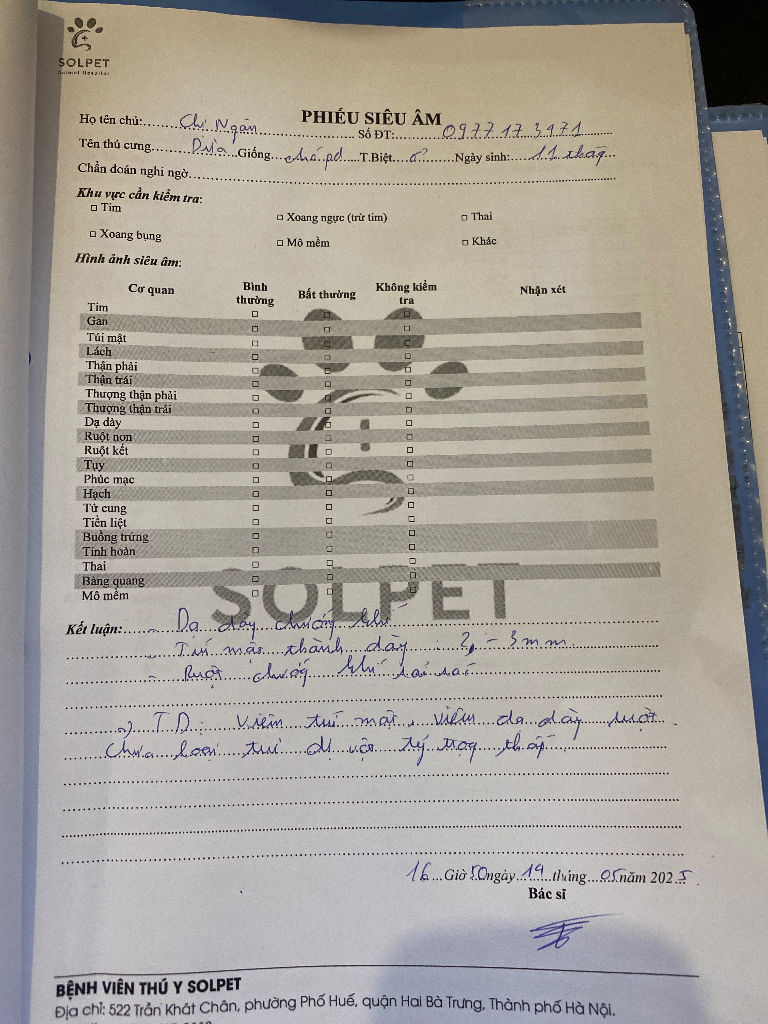 SOLPET
Animal Hospital
PHIẾU SIÊU ÂM
Họ tên chủ: Chị Ngân Số ĐT: 0977173971
Tên thú cưng Dừa Giống chó pd T.Biệt ♂ Ngày sinh: 11 tháng
Chẩn đoán nghi ngờ
Khu vực cần kiểm tra:
□ Tim □ Xoang ngực (trừ tim) □ Thai
□ Xoang bụng □ Mô mềm □ Khác
Hình ảnh siêu âm:
Cơ quan Bình thường Bất thường Không kiểm tra Nhận xét
Tim □ □ □
Gan □ □ □
Túi mật □ □ □
Lách □ □ □
Thận phải □ □ □
Thận trái □ □ □
Thượng thận phải □ □ □
Thượng thận trái □ □ □
Dạ dày □ □ □
Ruột non □ □ □
Ruột kết □ □ □
Tụy □ □ □
Phúc mạc □ □ □
Hạch □ □ □
Tử cung □ □ □
Tiền liệt □ □ □
Buồng trứng □ □ □
Tinh hoàn □ □ □
Thai □ □ □
Bàng quang □ □ □
Mô mềm □ □ □
SOLPET
Kết luận: - Dạ dày chướng khí
- Túi mật thành dày : 2 - 3 mm
- Ruột chướng khí rải rác
=> TD: Viêm túi mật, viêm dạ dày ruột
Chưa loại trừ dị vật tỷ trọng thấp
16 Giờ 50 ngày 19 tháng 05 năm 2025
Bác sĩ
BỆNH VIỆN THÚ Y SOLPET
Địa chỉ: 522 Trần Khát Chân, phường Phố Huế, quận Hai Bà Trưng, Thành phố Hà Nội.